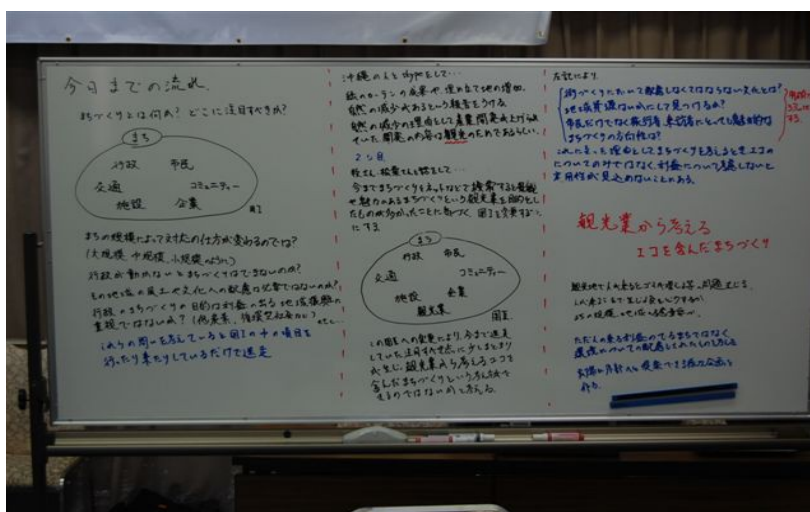 今日までの流れ
まちづくりとは何か？どこに注目すべきか？
まち
行政 市民
交通 コミュニティー
施設 企業
図I
まちの規模によって対応の仕方が変わるのでは？
(大規模、中規模、小規模のように)
行政が動かないとまちづくりはできないのか？
その地域の風土や文化への配慮は必要ではないのか？
行政のまちづくりの目的は利益の出る地域振興の
重視ではないか？
これらの問いを考えていると図Iの中の項目を
行ったり来たりしているだけで迷走
沖縄の人とskypeをして…
緑のカーテンの成果や、埋め立て地の増加、
自然の減少があるという報告をうける。
自然の減少の理由として産業開発が上げられ
ていた 開発の内容は観光のためであるらしい。
2つ目
さんと話をして…
今までまちづくりをネットなどで検索すると景観
や魅力のあるまちづくりという観光業を目的とし
たものが多かったことに気づく、図Iを変更すること
にする
まち
行政 市民
交通 コミュニティー
施設 企業
観光業
図II
この図IIへの変更により、今まで迷走
していた注目すべき点に少しまとまり
が生じ、観光業から考えるエコを
含んだまちづくりという考え方が
できるのではないかと考える。
左記により
街づくりにおいて配慮しなくてはならない文化とは？
地域資源はいかにして見つけるか？
市民だけでなく旅行者、来訪者にとっても魅力的な
まちづくりの方向性は？
これに至った理由としてまちづくりを考えるときエコの
についてのみではなく、利益についても考慮しないと
実用性が見込めないことがある。
観光業から考える
エコを含んだまちづくり
観光地で人の来るとゴミが増える等の問題
ただ人の来る利益のでるまちではなく
環境についての配慮もされたものを考える